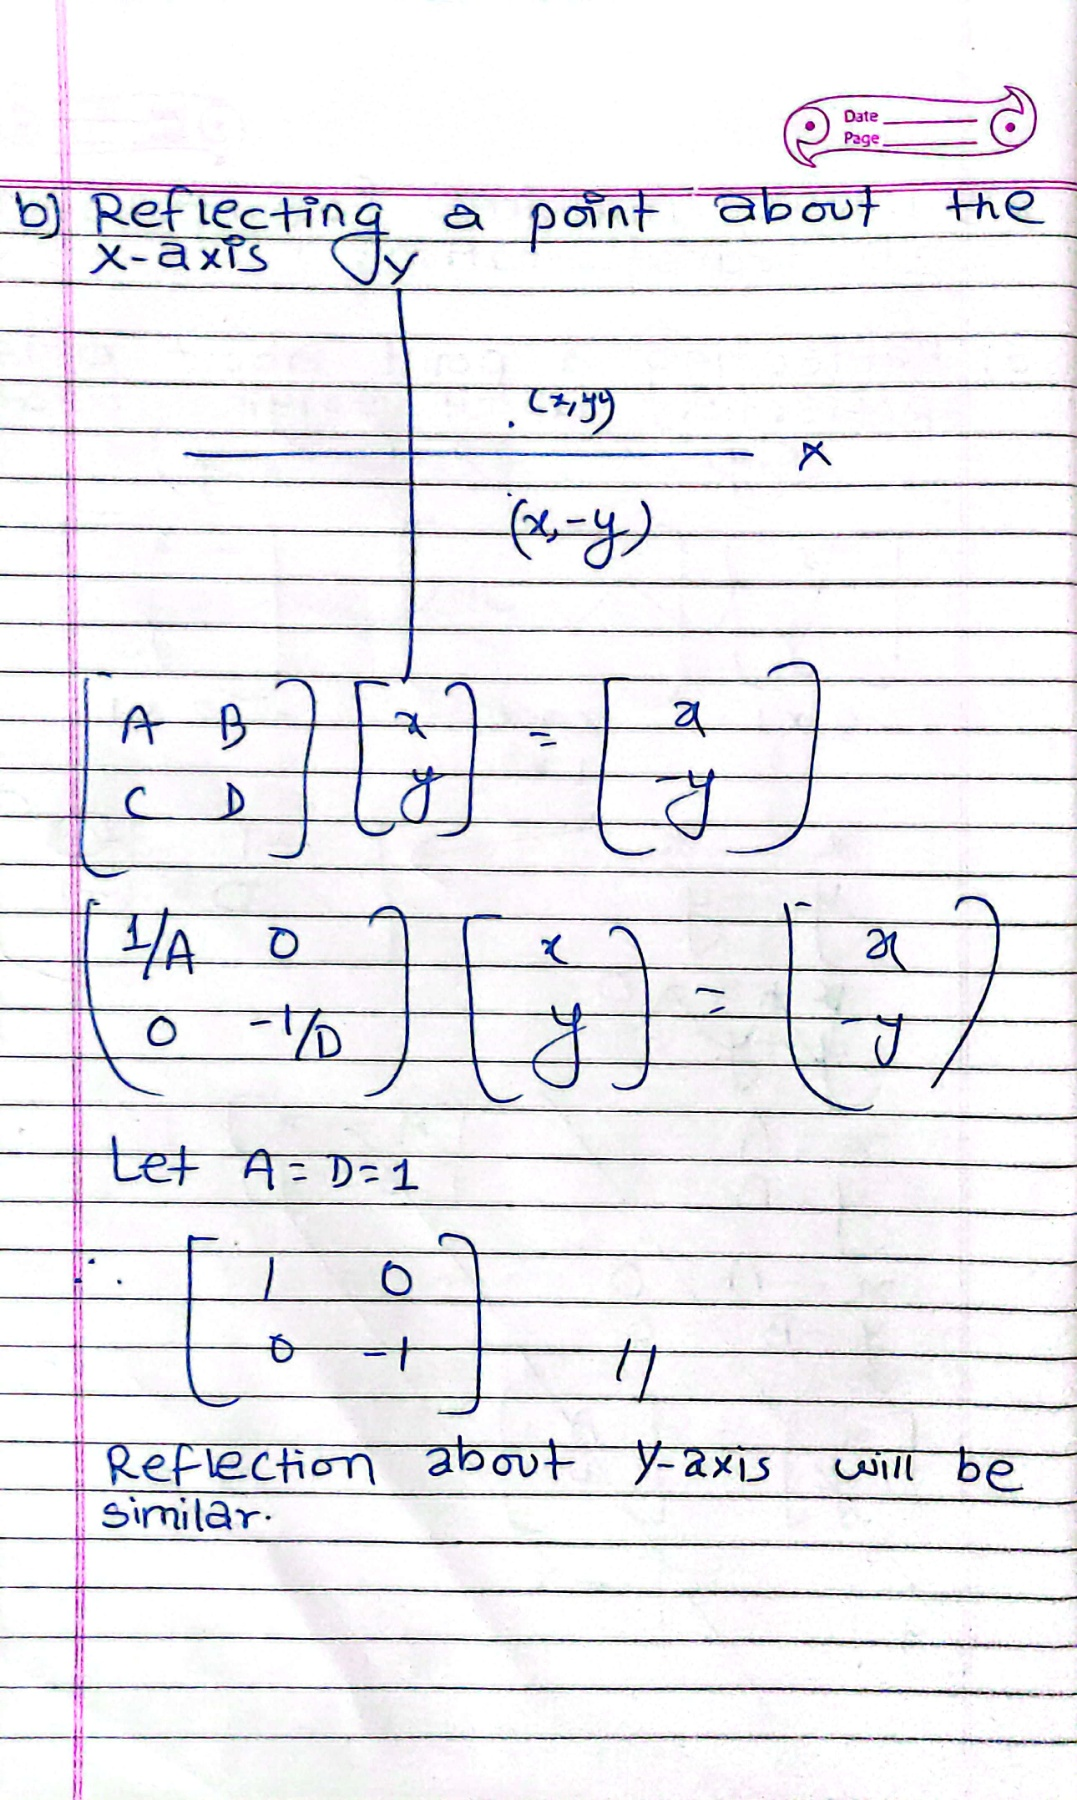 Date
Page
b) Reflecting a point about the
x-axis
y
(x,y)
x
(x,-y)
[A B] [x] = [x]
[C D] [y] [-y]
[1/A 0] [x] = [x]
[0 -1/D] [y] [-y]
Let A=D=1
∴ [1 0]
[0 -1] //
Reflection about y-axis will be
similar.